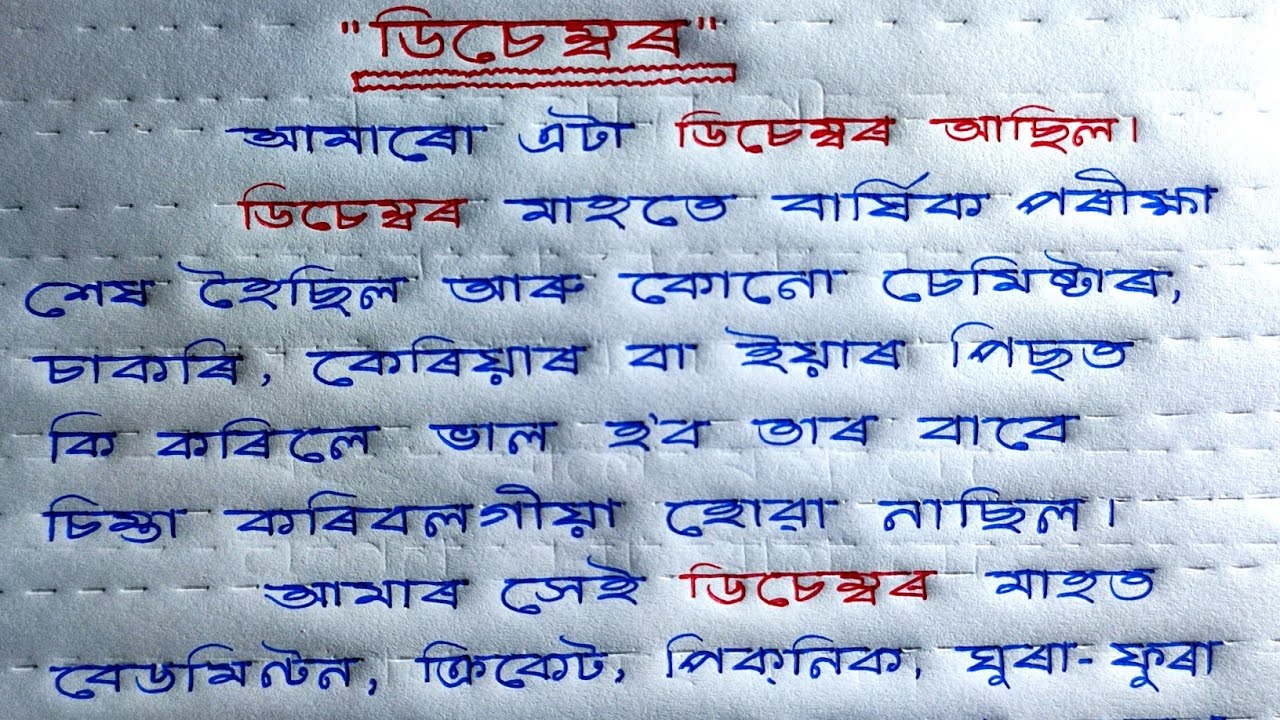 "ডিচেম্বৰ"
আমাৰো এটা ডিচেম্বৰ আছিল।
ডিচেম্বৰ মাহতে বাৰ্ষিক পৰীক্ষা
শেষ হৈছিল আৰু কোনো চেমিষ্টাৰ,
চাকৰি, কেৰিয়াৰ বা ইয়াৰ পিছত
কি কৰিলে ভাল হ'ব তাৰ বাবে
চিন্তা কৰিবলগীয়া হোৱা নাছিল।
আমাৰ সেই ডিচেম্বৰ মাহত
বেডমিন্টন, ক্ৰিকেট, পিক্‌নিক, ঘূৰা-ফুৰা